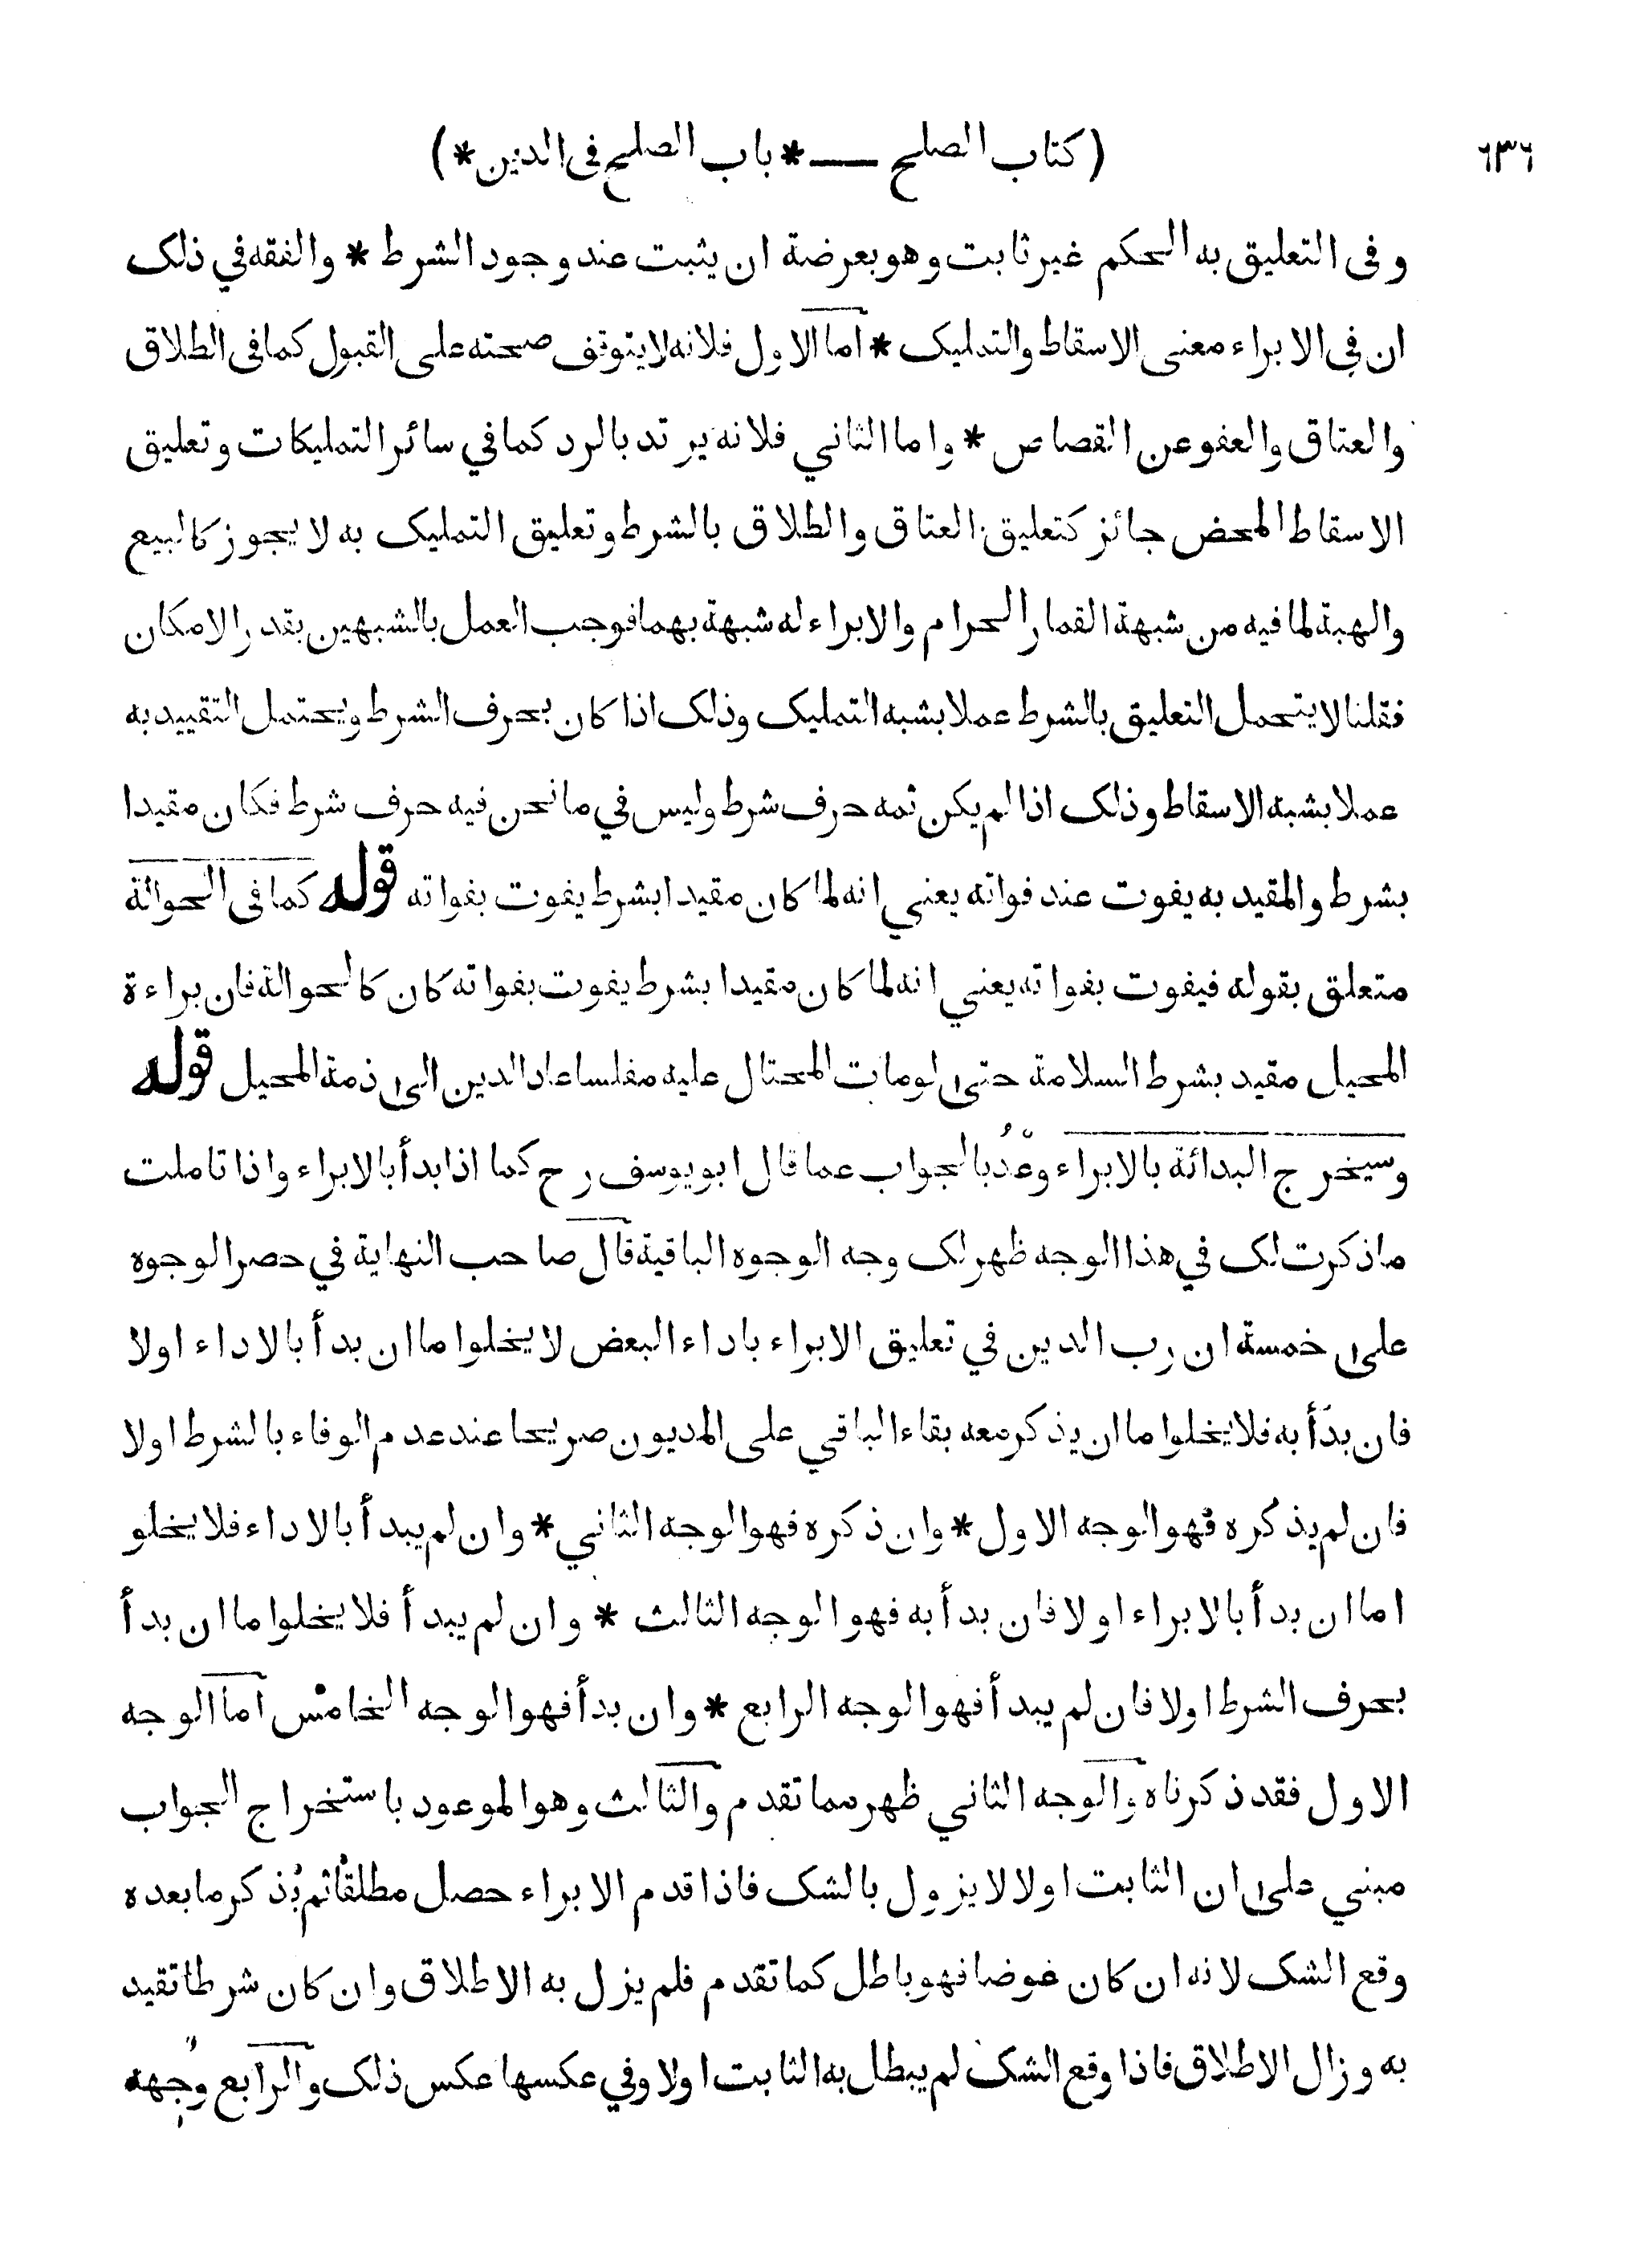 ٦٣٦ (كتاب الصلح — * باب الصلح فى الدين *)
وفى التعليق به الحكم غير ثابت وهو بعرضة ان يثبت عند وجود الشرط * والفقه في ذلك
ان في الابراء معنى الاسقاط والتمليك * اما الاول فلانه لا يتوقف صحته على القبول كما فى الطلاق
والعتاق والعفو عن القصاص * واما الثاني فلانه يرتد بالرد كما في سائر التمليكات وتعليق
الاسقاط المحض جائز كتعليق العتاق والطلاق بالشرط وتعليق التمليك به لا يجوز كالبيع
والهبة لما فيه من شبهة القمار الحرام والابراء له شبهة بهما فوجب العمل بالشبهين بقدر الامكان
فقلنا لا يتحمل التعليق بالشرط عملا بشبه التمليك وذلك اذا كان بحرف الشرط ويحتمل التقييد به
عملا بشبه الاسقاط وذلك اذا لم يكن ثمه حرف شرط وليس في ما نحن فيه حرف شرط فكان مقيدا
بشرط والمقيد به يفوت عند فواته يعني انه لما كان مقيدا بشرط يفوت بفواته قوله كما فى الحوالة
متعلق بقوله فيفوت بفواته يعني انه لما كان مقيدا بشرط يفوت بفواته كان كالحوالة فان براءة
المحيل مقيد بشرط السلامة حتى لو مات المحتال عليه مفلسا عاد الدين الى ذمة المحيل قوله
وسيخرج البدائة بالابراء وعْدُ بالجواب عما قال ابو يوسف رح كما اذا بدأ بالابراء واذا تاملت
ما ذكرت لك في هذا الوجه ظهر لك وجه الوجوه الباقية قال صاحب النهاية في حصر الوجوه
على خمسة ان رب الدين في تعليق الابراء باداء البعض لا يخلوا ما ان بدأ بالاداء اولا
فان بدأ به فلا يخلوا ما ان يذكر معه بقاء الباقي على المديون صريحا عند عدم الوفاء بالشرط اولا
فان لم يذكره فهو الوجه الاول * وان ذكره فهو الوجه الثاني * وان لم يبدأ بالاداء فلا يخلو
اما ان بدأ بالابراء اولا فان بدأ به فهو الوجه الثالث * وان لم يبدأ فلا يخلوا ما ان بدأ
بحرف الشرط اولا فان لم يبدأ فهو الوجه الرابع * وان بدأ فهو الوجه الخامس اما الوجه
الاول فقد ذكرناه والوجه الثاني ظهر مما تقدم والثالث وهو الموعود باستخراج الجواب
مبني على ان الثابت اولا لا يزول بالشك فاذا قدم الابراء حصل مطلقا ثم بُذكر ما بعده
وقع الشك لانه ان كان عوضا فهو باطل كما تقدم فلم يزل به الاطلاق وان كان شرطا تقيد
به وزال الاطلاق فاذا وقع الشك لم يبطل به الثابت اولا وفي عكسها عكس ذلك والرابع وجهه